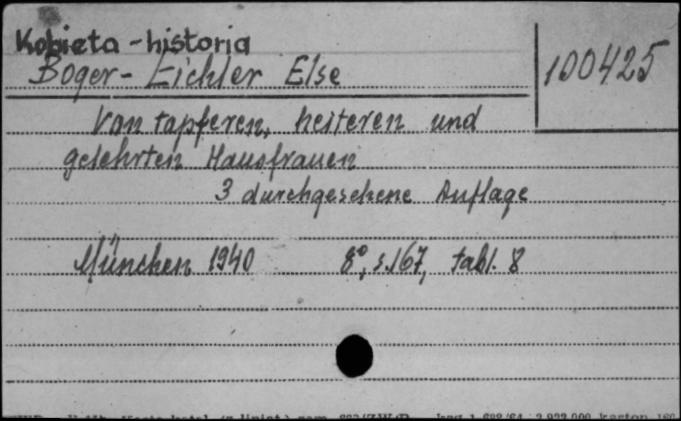 Kobieta - historia
Boger- Eichler Else
100425
Von tapferen, heiteren und
gelehrten Hausfrauen
3 durchgesehene Auflage
München 1940 8°, s.167, tabl. 8